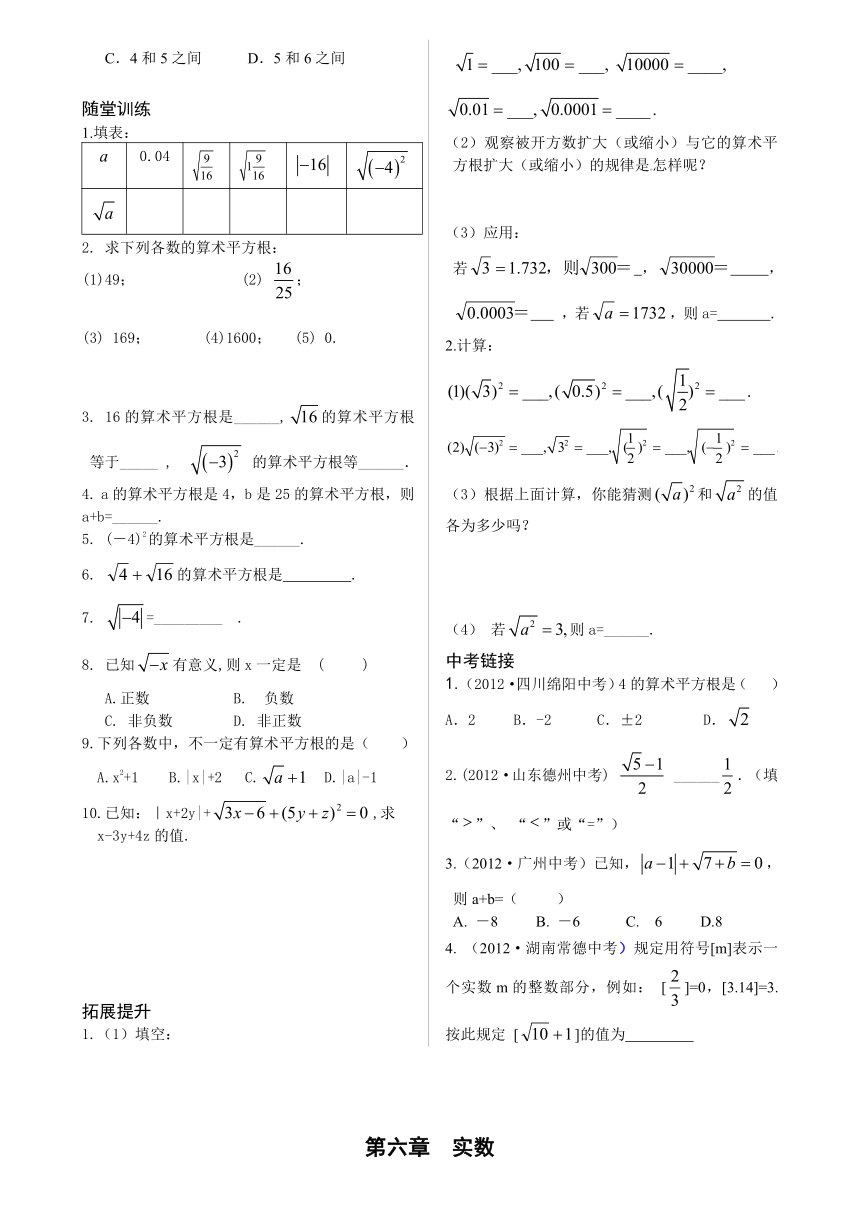 C．4 和 5 之间 D．5 和 6 之间
随堂训练
1.填表：
a 0.04 √(9/16) √(1 9/16) |−16| √((−4)²)
√a
2. 求下列各数的算术平方根：
(1)49； (2) 16/25；
(3) 169； (4)1600； (5) 0.
3. 16 的算术平方根是______,√16 的算术平方根
等于_____ , √((−3)²) 的算术平方根等______．
4. a 的算术平方根是 4，b 是 25 的算术平方根，则
a+b=______.
5. (－4)²的算术平方根是______.
6. √4＋√16 的算术平方根是_________.
7. √|−4| =_________ .
8. 已知√−x 有意义,则 x 一定是 ( )
A.正数 B. 负数
C. 非负数 D. 非正数
9.下列各数中，不一定有算术平方根的是（ ）
A.x²+1 B.|x|+2 C.√a +1 D.|a|-1
10.已知：｜x+2y|+√(3x−6)+(5y+z)²=0 ,求
x-3y+4z 的值.
拓展提升
1.（1）填空：
√1 = ___,√100 = ___, √10000 = ____,
√0.01 = ___,√0.0001 = ____.
（2）观察被开方数扩大（或缩小）与它的算术平
方根扩大（或缩小）的规律是怎样呢？
（3）应用：
若√3 =1.732, 则√300=_, √30000=_____,
√0.0003=___ ，若√a =1732，则 a=_______.
2.计算：
(1)(√3)² = ___,(√0.5)² = ___,(√(1/2))² = ___.
(2)√((−3)²) = ___,√(3²) = ___,√((1/2)²) = ___,√((−1/2)²) = ___.
（3）根据上面计算，你能猜测(√a)²和√(a²) 的值
各为多少吗？
（4） 若√(a²) =3,则 a=______.
中考链接
1.（2012·四川绵阳中考)4 的算术平方根是（ ）
A．2 B．-2 C．±2 D．√2
2.(2012·山东德州中考) (√5−1)/2 ______ 1/2．（填
“＞”、 “＜”或“=”）
3.（2012·广州中考）已知，|a−1|+√(7+b)=0，
则 a+b=（ ）
A. －8 B. －6 C. 6 D.8
4. （2012·湖南常德中考）规定用符号[m]表示一
个实数 m 的整数部分，例如： [2/3]=0，[3.14]=3.
按此规定 [√10+1]的值为_________
第六章 实数